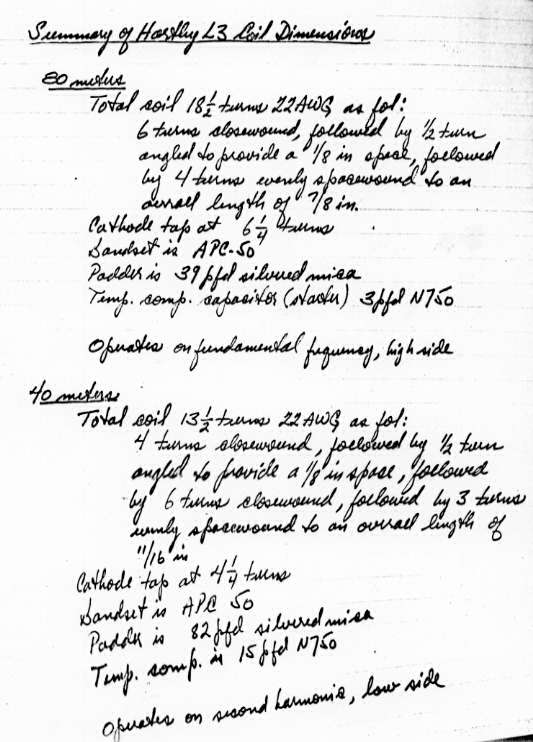 Summary of Hartley L3 Coil Dimensions
80 meters
Total coil 18 1/2 turns 22 AWG as fol:
6 turns closewound, followed by 1/2 turn
angled to provide a 1/8 in space, followed
by 4 turns evenly spacewound to an
overall length of 7/8 in.
Cathode tap at 6 1/4 turns
Bandset is APC-50
Padder is 39 pfd silvered mica
Temp. comp. capacitor (starter) 3pfd N750
Operates on fundamental frequency, high side
40 meters
Total coil 13 1/2 turns 22 AWG as fol:
4 turns closewound, followed by 1/2 turn
angled to provide a 1/8 in space, followed
by 6 turns closewound, followed by 3 turns
evenly spacewound to an overall length of
11/16 in
Cathode tap at 4 1/4 turns
Bandset is APC 50
Padder is 82 pfd silvered mica
Temp. comp. is 15 pfd N750
Operates on second harmonic, low side